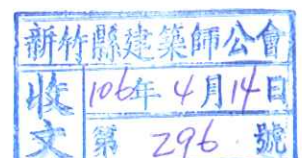 新竹縣建築師公會
收文
106年4月14日
第 296 號